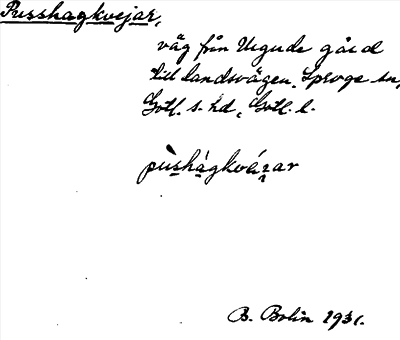 Pusshagkvejar,
väg från Ugude gård
till landsvägen. Sproge sn,
Gotl. s. hd, Gotl. l.
pùshágkvéꝛar
B. Bolin 1931.